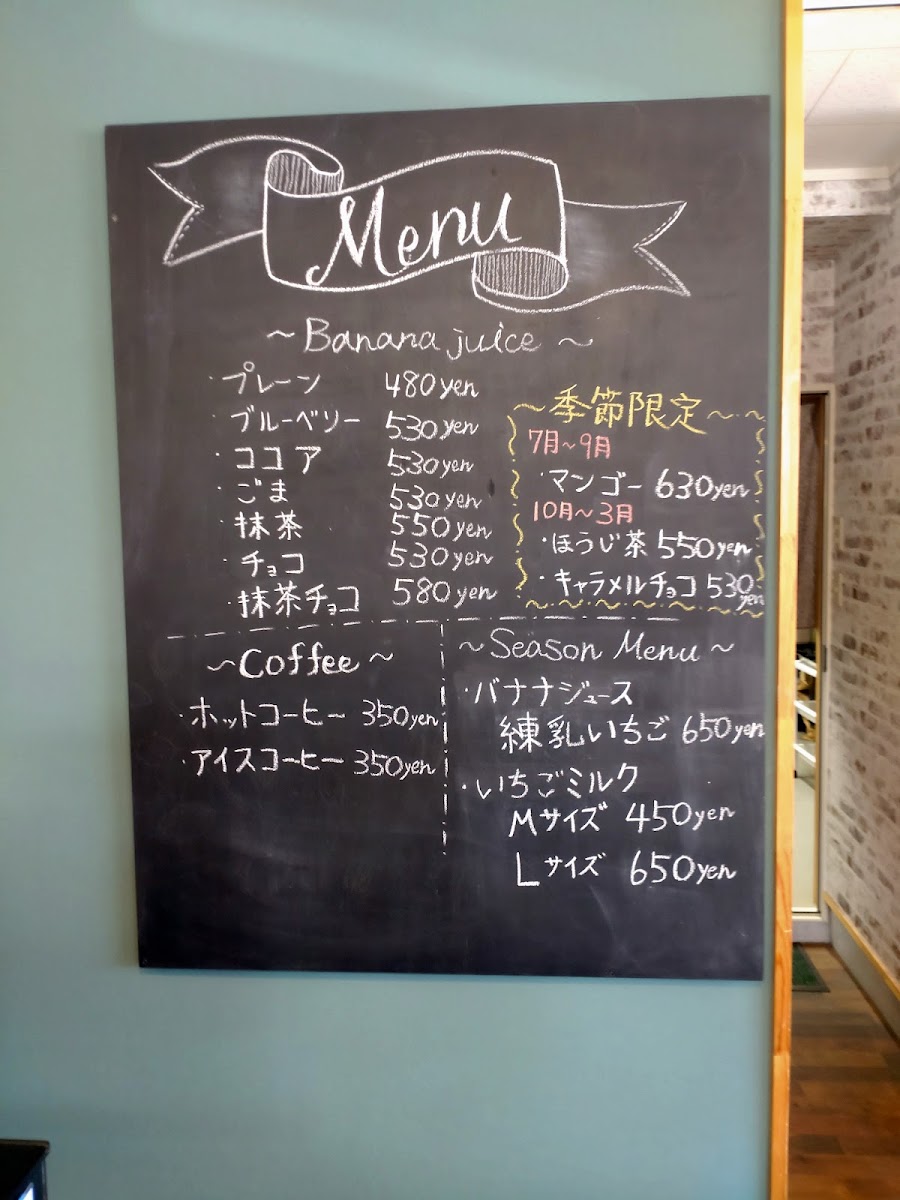 Menu
~Banana juice~
・プレーン 480yen
・ブルーベリー 530yen
・ココア 530yen
・ごま 530yen
・抹茶 550yen
・チョコ 530yen
・抹茶チョコ 580yen
~季節限定~
7月~9月
・マンゴー 630yen
10月~3月
・ほうじ茶 550yen
・キャラメルチョコ 530yen
~Coffee~
・ホットコーヒー 350yen
・アイスコーヒー 350yen
~Season Menu~
・バナナジュース
練乳いちご 650yen
・いちごミルク
Mサイズ 450yen
Lサイズ 650yen